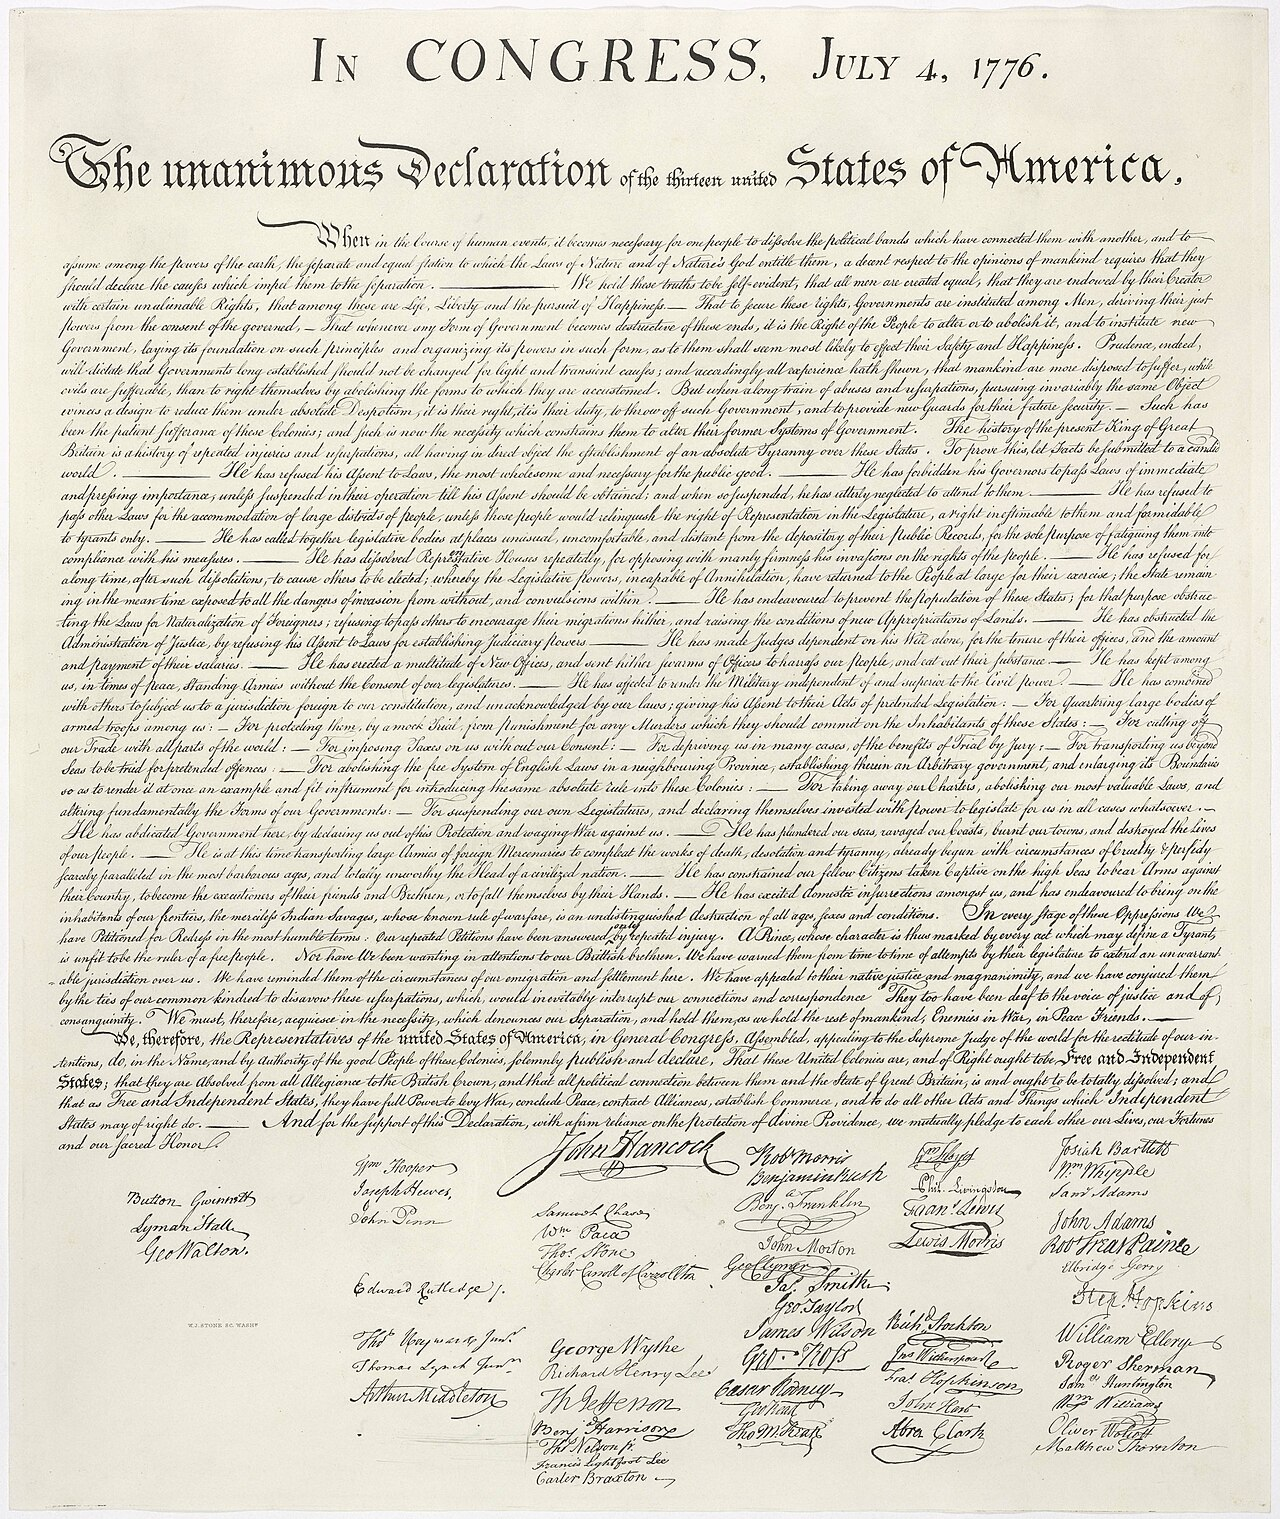 In CONGRESS, July 4, 1776.
The unanimous Declaration of the thirteen united States of America,
When in the Course of human events, it becomes necessary for one people to dissolve the political bands which have connected them with another, and to
assume among the powers of the earth, the separate and equal station to which the Laws of Nature and of Nature's God entitle them, a decent respect to the opinions of mankind requires that they
should declare the causes which impel them to the separation. ——— We hold these truths to be self-evident, that all men are created equal, that they are endowed by their Creator
with certain unalienable Rights, that among these are Life, Liberty and the pursuit of Happiness.— That to secure these rights, Governments are instituted among Men, deriving their just
powers from the consent of the governed, — That whenever any Form of Government becomes destructive of these ends, it is the Right of the People to alter or to abolish it, and to institute new
Government, laying its foundation on such principles and organizing its powers in such form, as to them shall seem most likely to effect their Safety and Happiness. Prudence, indeed,
will dictate that Governments long established should not be changed for light and transient causes; and accordingly all experience hath shewn, that mankind are more disposed to suffer, while
evils are sufferable, than to right themselves by abolishing the forms to which they are accustomed. But when a long train of abuses and usurpations, pursuing invariably the same Object
evinces a design to reduce them under absolute Despotism, it is their right, it is their duty, to throw off such Government, and to provide new Guards for their future security. — Such has
been the patient sufferance of these Colonies; and such is now the necessity which constrains them to alter their former Systems of Government. The history of the present King of Great
Britain is a history of repeated injuries and usurpations, all having in direct object the establishment of an absolute Tyranny over these States. To prove this, let Facts be submitted to a candid
world. ——— He has refused his Assent to Laws, the most wholesome and necessary for the public good. ——— He has forbidden his Governors to pass Laws of immediate
and pressing importance, unless suspended in their operation till his Assent should be obtained; and when so suspended, he has utterly neglected to attend to them. ——— He has refused to
pass other Laws for the accommodation of large districts of people, unless those people would relinquish the right of Representation in the Legislature, a right inestimable to them and formidable
to tyrants only. ——— He has called together legislative bodies at places unusual, uncomfortable, and distant from the depository of their Public Records, for the sole purpose of fatiguing them into
compliance with his measures. ——— He has dissolved Representative Houses repeatedly, for opposing with manly firmness his invasions on the rights of the people. ——— He has refused for
a long time, after such dissolutions, to cause others to be elected; whereby the Legislative powers, incapable of Annihilation, have returned to the People at large for their exercise; the State remain
ing in the mean time exposed to all the dangers of invasion from without, and convulsions within. ——— He has endeavoured to prevent the population of these States; for that purpose obstruc
ting the Laws for Naturalization of Foreigners; refusing to pass others to encourage their migrations hither, and raising the conditions of new Appropriations of Lands. ——— He has obstructed the
Administration of Justice, by refusing his Assent to Laws for establishing Judiciary powers. ——— He has made Judges dependent on his Will alone, for the tenure of their offices, and the amount
and payment of their salaries. ——— He has erected a multitude of New Offices, and sent hither swarms of Officers to harrass our people, and eat out their substance. ——— He has kept among
us, in times of peace, Standing Armies without the Consent of our legislatures. ——— He has affected to render the Military independent of and superior to the Civil power. ——— He has combined
with others to subject us to a jurisdiction foreign to our constitution, and unacknowledged by our laws; giving his Assent to their Acts of pretended Legislation: — For Quartering large bodies of
armed troops among us: — For protecting them, by a mock Trial, from punishment for any Murders which they should commit on the Inhabitants of these States: — For cutting off
our Trade with all parts of the world: — For imposing Taxes on us without our Consent: — For depriving us in many cases, of the benefits of Trial by Jury: — For transporting us beyond
Seas to be tried for pretended offences: — For abolishing the free System of English Laws in a neighbouring Province, establishing therein an Arbitrary government, and enlarging its Boundaries
so as to render it at once an example and fit instrument for introducing the same absolute rule into these Colonies: — For taking away our Charters, abolishing our most valuable Laws, and
altering fundamentally the Forms of our Governments: — For suspending our own Legislatures, and declaring themselves invested with power to legislate for us in all cases whatsoever. —
He has abdicated Government here, by declaring us out of his Protection and waging War against us. — He has plundered our seas, ravaged our Coasts, burnt our towns, and destroyed the lives
of our people. — He is at this time transporting large Armies of foreign Mercenaries to compleat the works of death, desolation and tyranny, already begun with circumstances of Cruelty & perfidy
scarcely paralleled in the most barbarous ages, and totally unworthy the Head of a civilized nation. — He has constrained our fellow Citizens taken Captive on the high Seas to bear Arms against
their Country, to become the executioners of their friends and Brethren, or to fall themselves by their Hands. — He has excited domestic insurrections amongst us, and has endeavoured to bring on the
inhabitants of our frontiers, the merciless Indian Savages, whose known rule of warfare, is an undistinguished destruction of all ages, sexes and conditions. In every stage of these Oppressions We
have Petitioned for Redress in the most humble terms: Our repeated Petitions have been answered only by repeated injury. A Prince, whose character is thus marked by every act which may define a Tyrant,
is unfit to be the ruler of a free people. Nor have We been wanting in attentions to our Brittish brethren. We have warned them from time to time of attempts by their legislature to extend an unwarrant
able jurisdiction over us. We have reminded them of the circumstances of our emigration and settlement here. We have appealed to their native justice and magnanimity, and we have conjured them
by the ties of our common kindred to disavow these usurpations, which, would inevitably interrupt our connections and correspondence They too have been deaf to the voice of justice and of
consanguinity. We must, therefore, acquiesce in the necessity, which denounces our Separation, and hold them, as we hold the rest of mankind, Enemies in War, in Peace Friends. —
We, therefore, the Representatives of the united States of America, in General Congress, Assembled, appealing to the Supreme Judge of the world for the rectitude of our in-
tentions, do, in the Name, and by Authority of the good People of these Colonies, solemnly publish and declare, That these United Colonies are, and of Right ought to be Free and Independent
States; that they are Absolved from all Allegiance to the British Crown, and that all political connection between them and the State of Great Britain, is and ought to be totally dissolved; and
that as Free and Independent States, they have full Power to levy War, conclude Peace, contract Alliances, establish Commerce, and to do all other Acts and Things which Independent
States may of right do. — And for the support of this Declaration, with a firm reliance on the protection of divine Providence, we mutually pledge to each other our Lives, our Fortunes
and our sacred Honor.
Button Gwinnett
Lyman Hall
Geo Walton.
W.J. STONE SC. WASHN
Wm Hooper
Joseph Hewes,
John Penn
Edward Rutledge.
Thos Heyward Junr.
Thomas Lynch Junr.
Arthur Middleton
John Hancock
Samuel Chase
Wm Paca
Thos Stone
Charles Carroll of Carrollton
George Wythe
Richard Henry Lee
Th Jefferson
Benj Harrison
Thos Nelson jr.
Francis Lightfoot Lee
Carter Braxton
Robt Morris
Benjamin Rush
Benja Franklin
John Morton
Geo Clymer
Jas. Smith
Geo. Taylor
James Wilson
Geo. Ross
Caesar Rodney
Geo Read
Tho M:Kean
Wm Floyd
Phil. Livingston
Frans. Lewis
Lewis Morris
Richd. Stockton
Jno Witherspoon
Fras. Hopkinson
John Hart
Abra Clark
Josiah Bartlett
Wm Whipple
Saml Adams
John Adams
Robt Treat Paine
Elbridge Gerry
Step. Hopkins
William Ellery
Roger Sherman
Saml Huntington
Wm Williams
Oliver Wolcott
Matthew Thornton